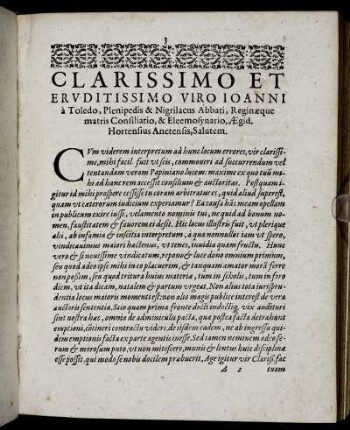 3
CLARISSIMO ET
ERVDITISSIMO VIRO IOANNI
à Toledo, Plenipedis & Nigrilacus Abbati, Reginæque
matris Consiliario, & Eleemosynario, Ægid.
Hortensius Anetensis, Salutem.
CVm viderem interpretum ad hunc locum errores, vir clarissi-
me, mihi facil fuit vt scis, commoueri ad succurrendum vel
tentandum veram Papiniano lucem: maximè ex quo tuũ mi-
hi ad hanc rem accessit consilium & auctoritas. Postquam i-
gitur id mihi prosperè cessisse tu coram arbitratus es, quid aliud superest,
quam vt cæterorum iudicium experiamur? Ea causa hãc meam epellam
in publicum exire iussi, velamento nominis tui, ne quid ad bonum no-
men, faustitatem & fauorem ei desit. Hic locus illustris fuit, vt plerique
alii, ab infamia & inscitia interpretum, à qua nonnullos iam vt spero,
vindicauimus maiori hactenus, vt tenes, inuidia quam fructu. Hunc
verò & si nouissimè vindicatum, repono & luce dono omnium primum,
seu quod adeo ipse mihi in eo placuerim, & tanquam amator morâ ferre
non possim, seu quod trita à huius materia, tum in scholis, tum in foro
dicam, vt ita dicam, natalem & partum vrgeat. Non alius tota iurispru-
dentia locus materis momenti est: non alio magis publicè interest de vera
auctoris sententia. Scio quam prima fronte dicti indictiq. vix auditori
sint nostra hæc, omnis de adminiculis pacta, quæ postea facta detrahant
emptioni, cõtineri contractu videri: de iisdem eadem, ne ab ingressu qui-
dem emptionis facta ex parte agentis inesse. Sed tamen neminem adeo se-
rum & morosum puto, vt non mitescere, munis & lentus huic disciplinæ
esse possit, qui modo se nobis docilem præbuerit. Age igitur vir Clariss. fac
A 2 tuam